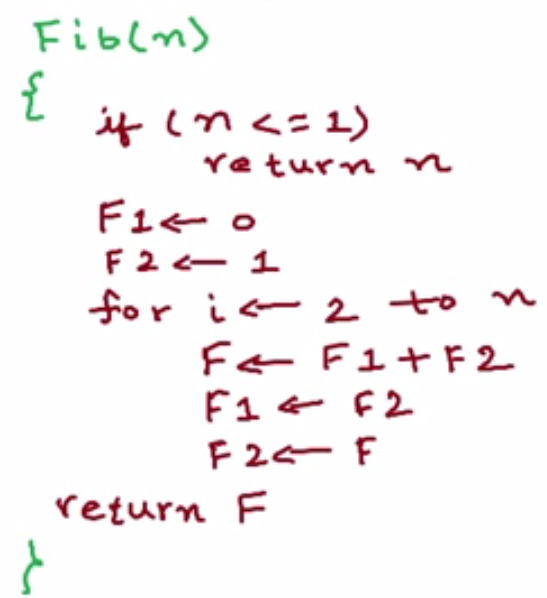 Fib(n)
{
if (n <= 1)
return n
F1 ← 0
F2 ← 1
for i ← 2 to n
F ← F1 + F2
F1 ← F2
F2 ← F
return F
}